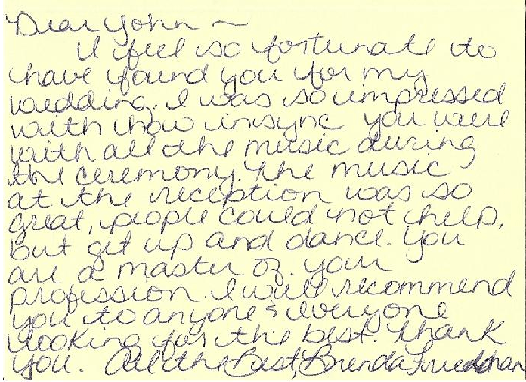 Dear John ~
I feel so fortunate to
have found you for my
wedding. I was so impressed
with how insync you were
with all the music during
the ceremony. The music
at the reception was so
great, people could not help,
but get up and dance. You
are a master of your
profession. I will recommend
you to anyone & everyone
looking for the best. Thank
you. All the Best, Brenda Friedman